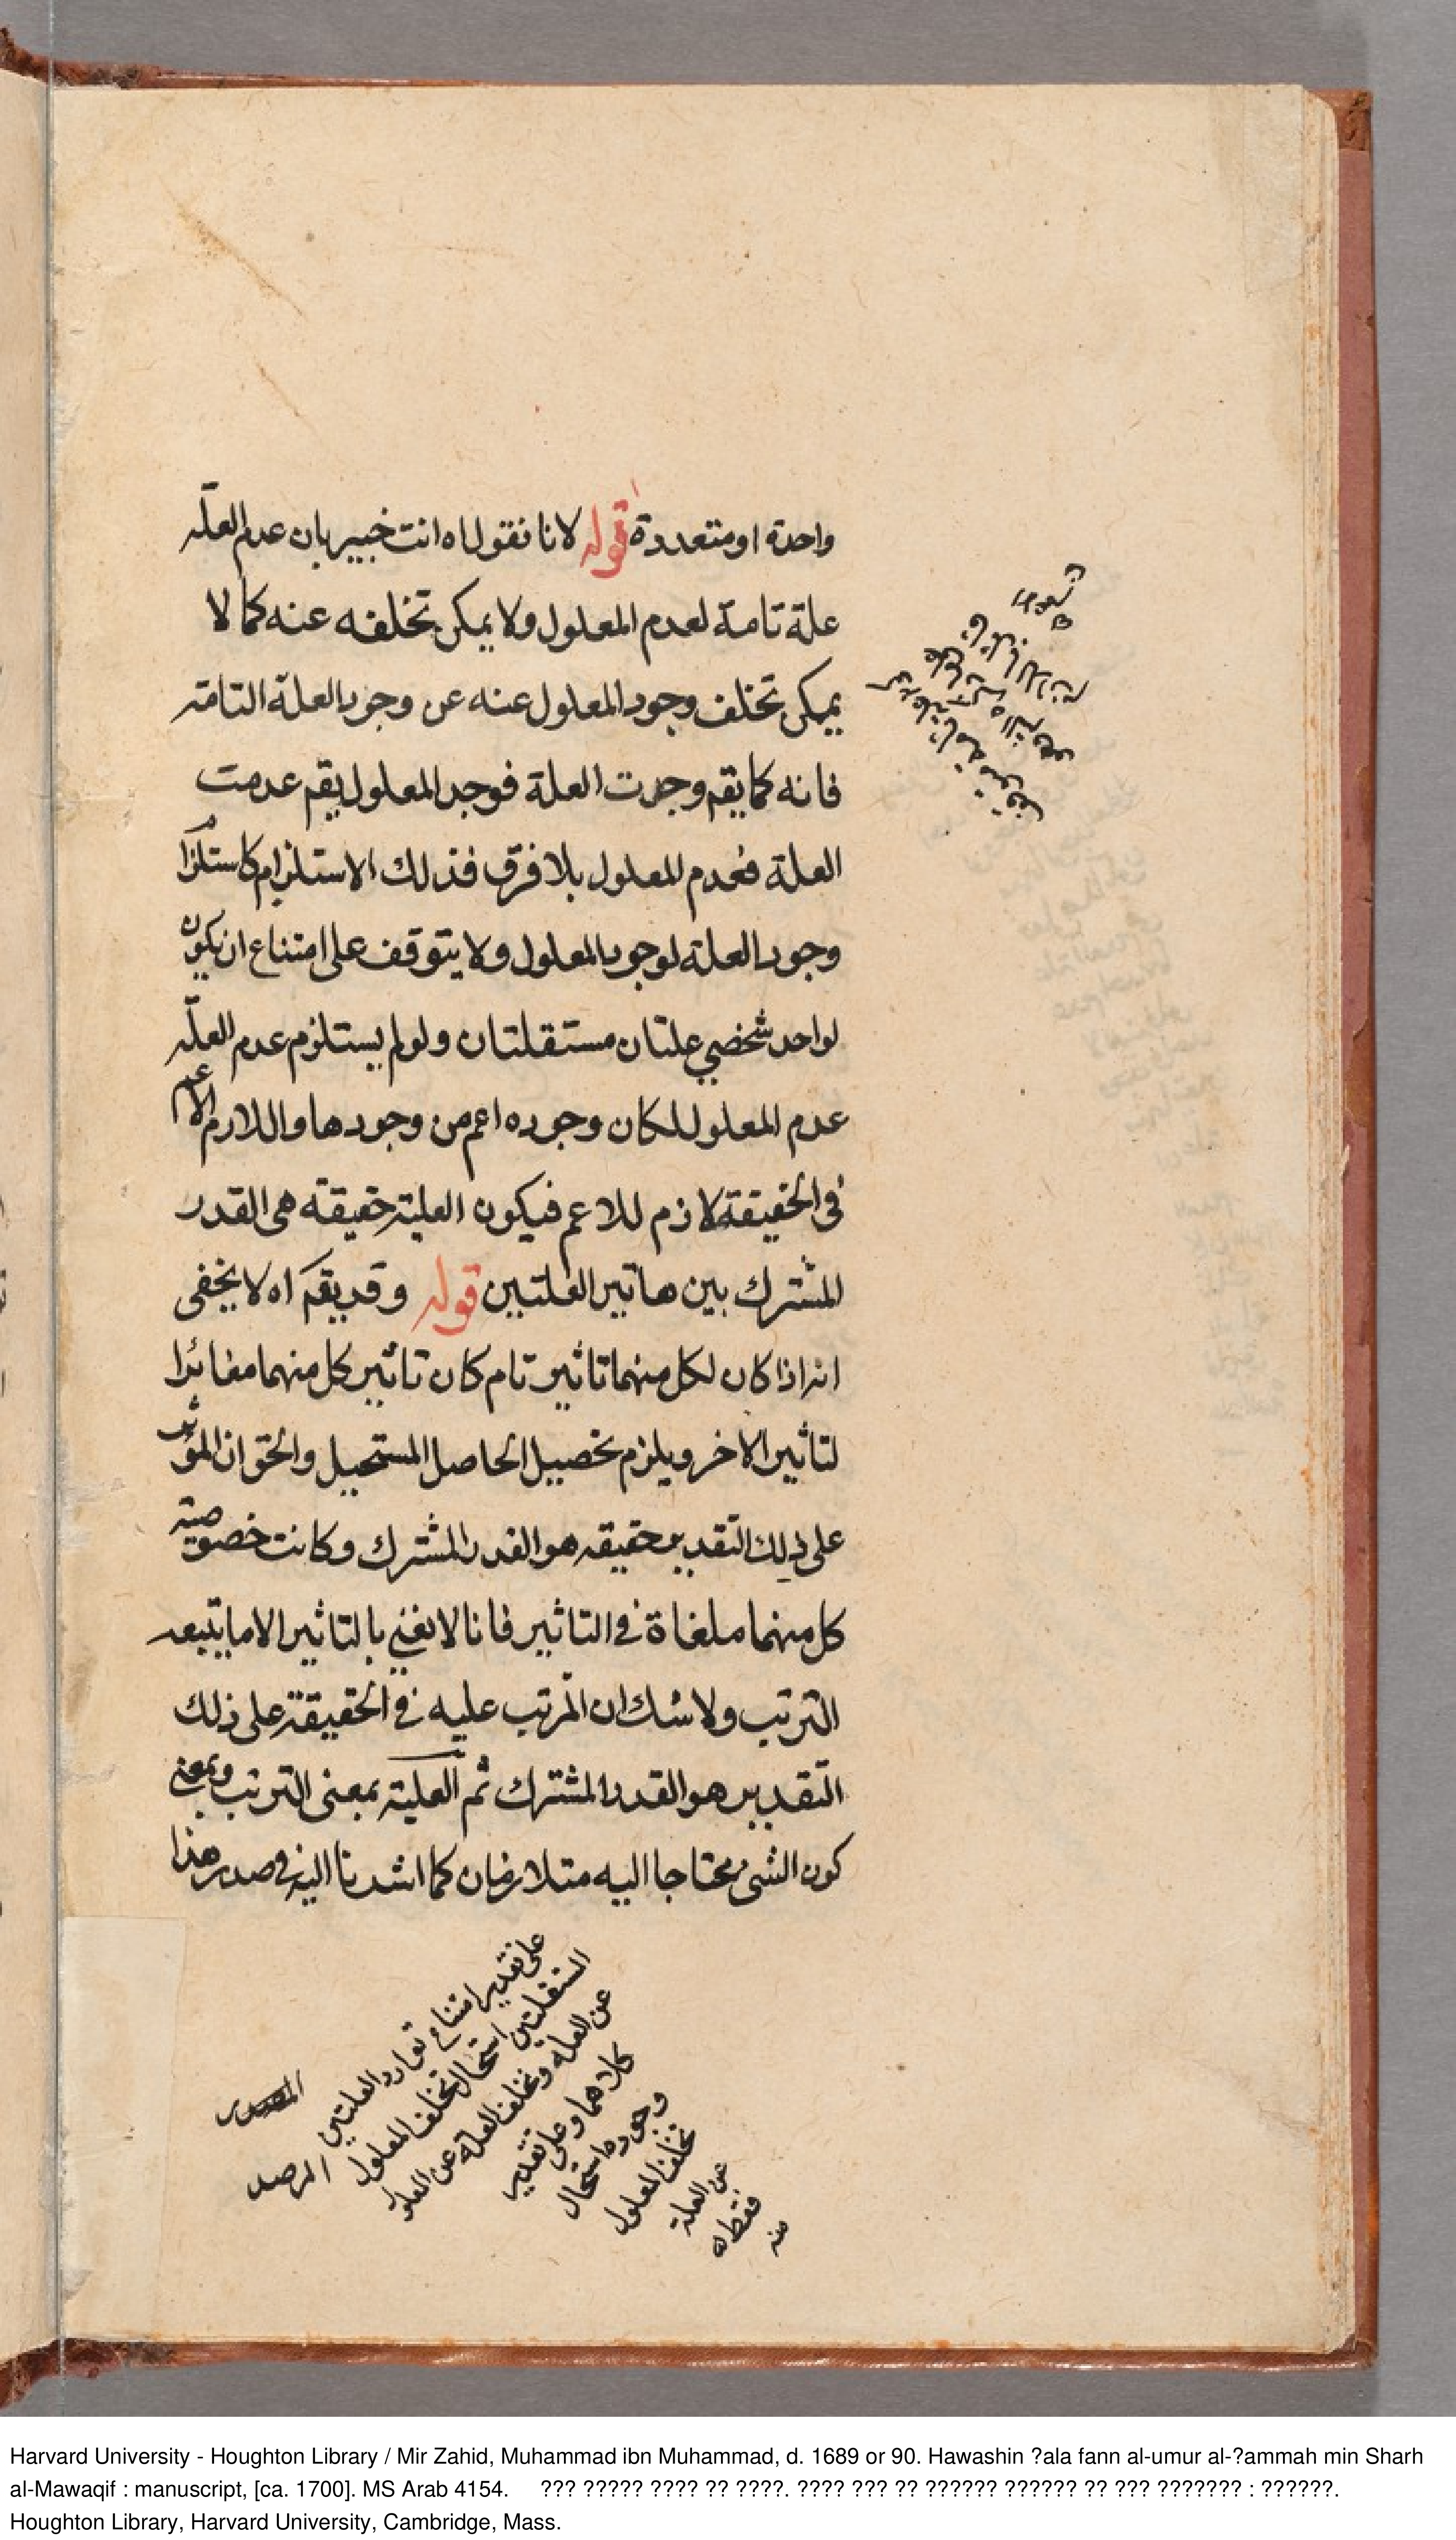 واحدة او متعددة قوله لانا نقول اه انت خبير بان عدم العلّه
علة تامة لعدم المعلول ولا يمكن تخلفه عنه كما لا
يمكن تخلف وجود المعلول عنه عن وجود العلة التامة
فانه كما يقم وجدت العلة فوجد المعلول يقم عدمت
العلة فعدم المعلول بلا فرق فذلك الاستلزام كاستلزام
وجود العلة لوجود المعلول ولا يتوقف على امتناع ان يكون
لواحد شخصي علتان مستقلتان ولو لم يستلزم عدم العلّه
عدم المعلول لكان وجوده اعم من وجودها واللازم الاعم
في الحقيقة لازم للاعم فيكون العلية حقيقة هي القدر
المشترك بين هاتين العلتين قوله وقد يقم اه لا يخفى
انه اذا كان لكل منهما تاثير تام كان تاثير كل منهما مغائرا
لتاثير الاخر ويلزم تحصيل الحاصل المستحيل والحق ان المؤثر
على ذلك التقدير حقيقه هو القدر المشترك وكانت خصوصية
كل منهما ملغاة في التاثير فانا لا نعني بالتاثير الا ما يتبعه
الترتب ولا شك ان المرتب عليه في الحقيقة على ذلك
التقدير هو القدر المشترك ثم العلية بمعنى الترتب وبمعنى
كون الشئ محتاجا اليه متلازمان كما اشرنا اليه في صدر هذا
المرصد
على تقدير امتناع توارد العلتين
المستقلتين استحال تخلف المعلول
عن العلة وتخلف العلة عن المعلول
كلاهما وعلى تقدير
وجوده استحال
تخلف المعلول
عن العلة
فقط
منه
Harvard University - Houghton Library / Mir Zahid, Muhammad ibn Muhammad, d. 1689 or 90. Hawashin ?ala fann al-umur al-?ammah min Sharh
al-Mawaqif : manuscript, [ca. 1700]. MS Arab 4154. ??? ????? ???? ?? ????. ???? ??? ?? ?????? ?????? ?? ??? ??????? : ??????.
Houghton Library, Harvard University, Cambridge, Mass.